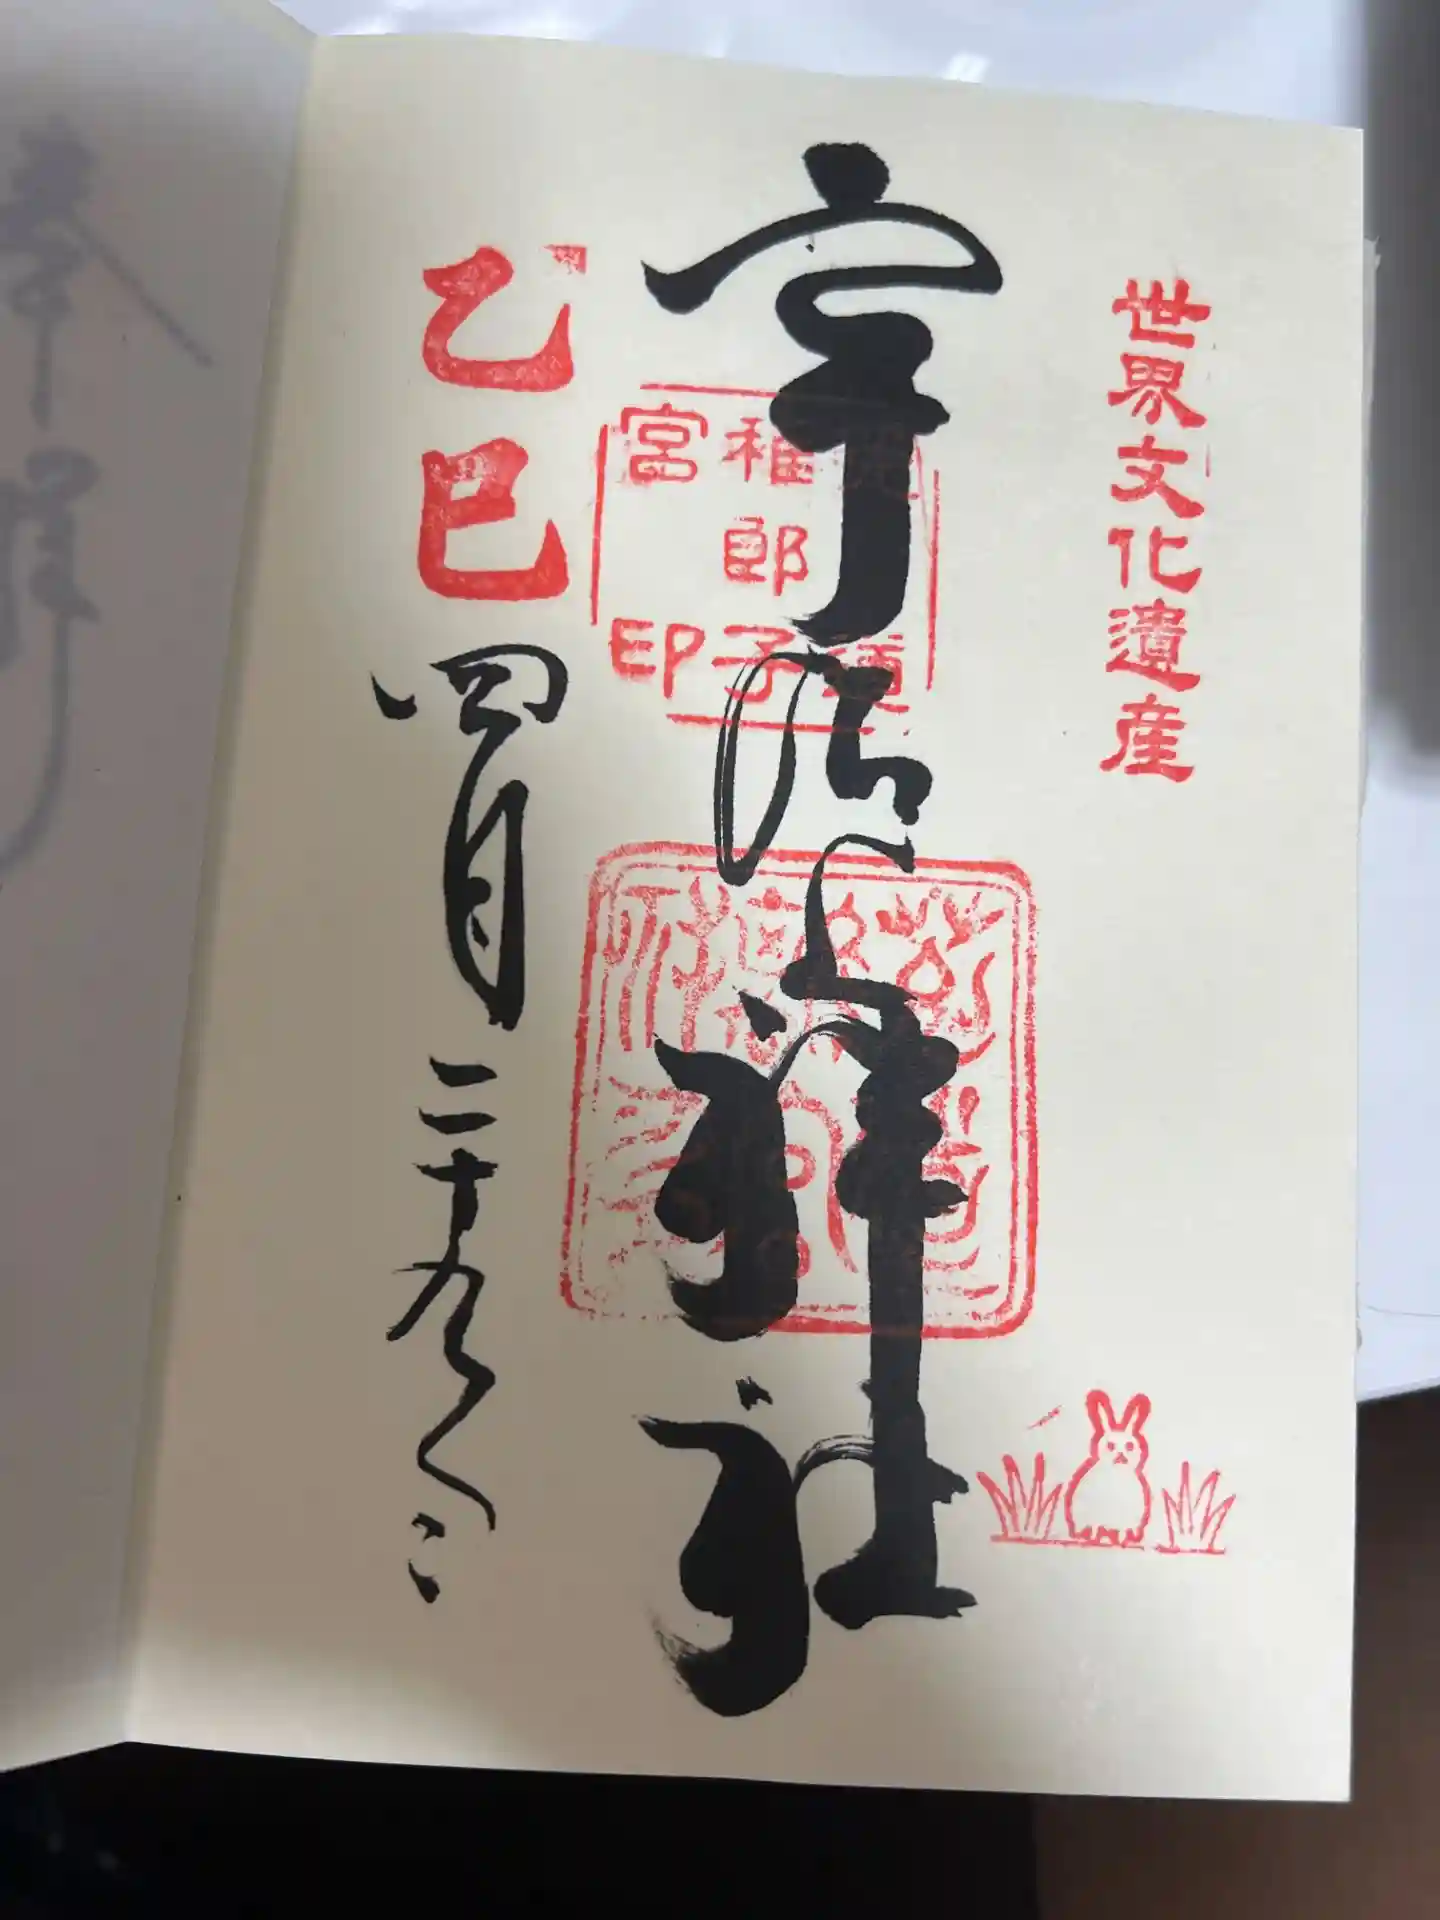 世界文化遺産
宇治神社
菟道
稚郎子
宮印
乙巳
四月二十九日
奉拝